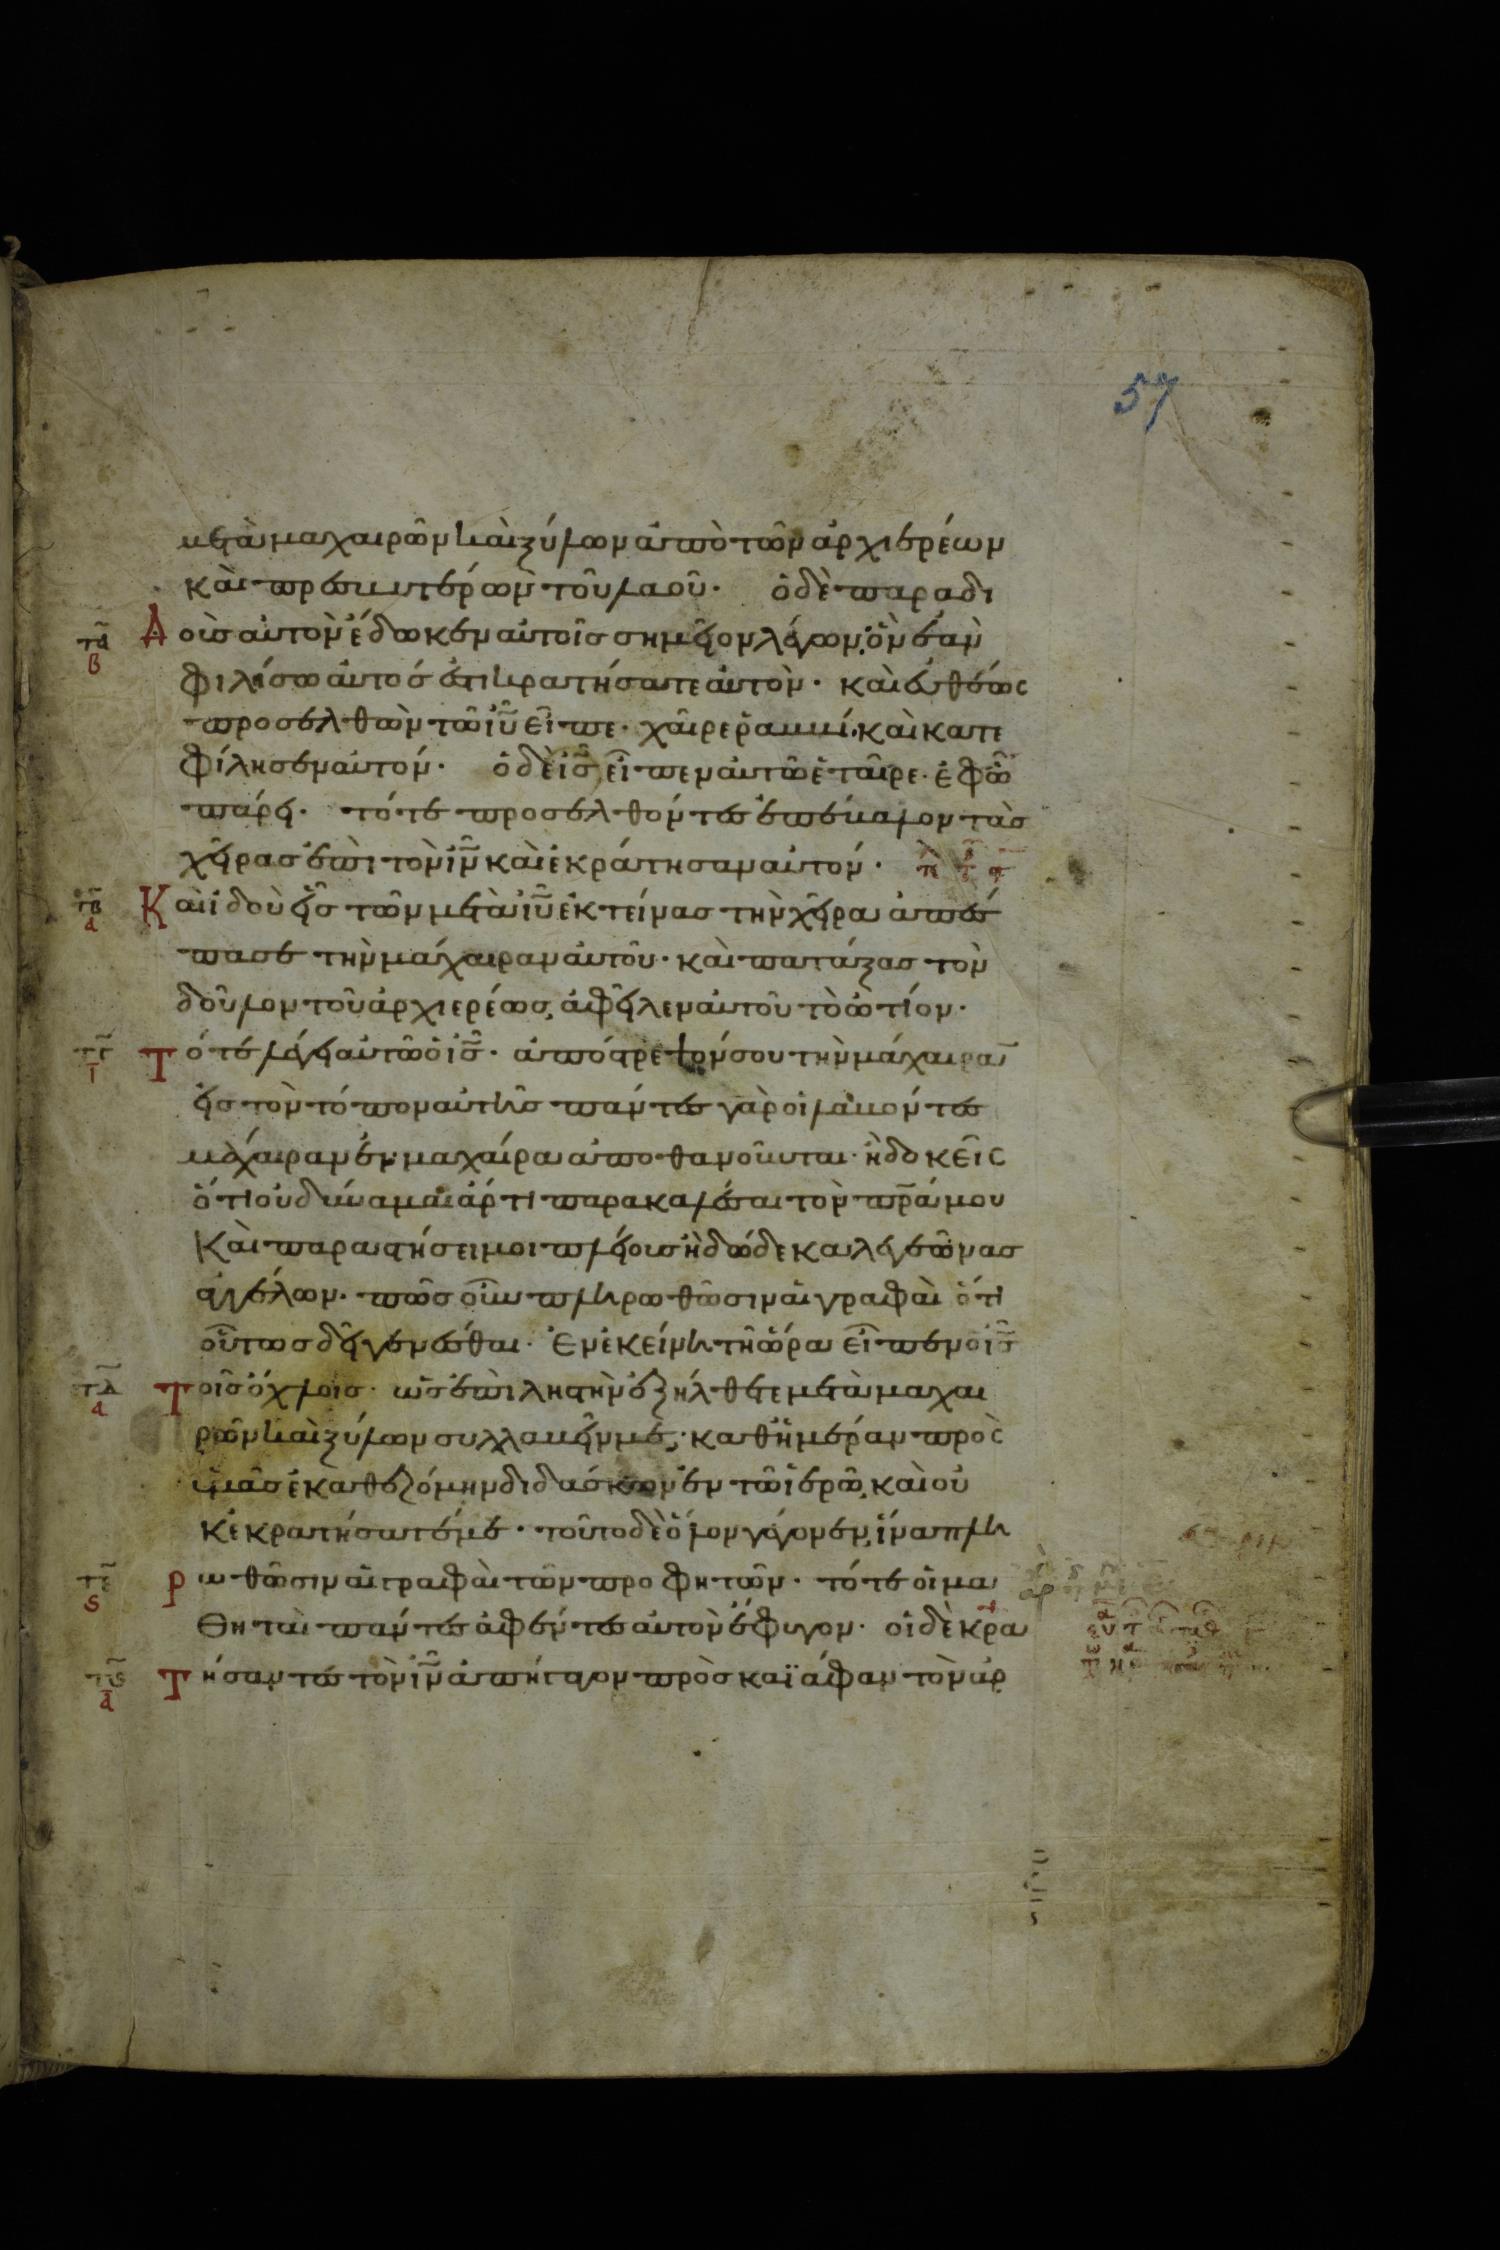 57
μετὰ μαχαιρῶν καὶ ξύλων ἀπὸ τῶν ἀρχιερέων
καὶ πρεσβυτέρων τοῦ λαοῦ· ὁ δὲ παραδι
τα β Δ οὺς αὐτὸν ἔδωκεν αὐτοῖς σημεῖον λέγων, ὃν ἐὰν
φιλήσω αὐτός ἐστι κρατήσατε αὐτὸν· καὶ εὐθέως
προσελθὼν τῶ ἰῦ εἶπε· χαῖρε ῥαββί· καὶ κατε
φίλησεν αὐτόν· ὁ δὲ ἰς εἶπεν αὐτῶ ἑταῖρε· ἐφ ὧ
πάρει· τότε προσελθόντες ἐπέβαλον τὰς
χεῖρας ἐπὶ τὸν ἰν καὶ ἐκράτησαν αὐτόν·
τβ α Καὶ ἰδοὺ εἷς τῶν μετὰ ἰῦ ἐκτείνας τὴν χεῖρα ἀπέσ
πασε τὴν μάχαιραν αὐτοῦ· καὶ πατάξας τὸν
δοῦλον τοῦ ἀρχιερέως, ἀφεῖλεν αὐτοῦ τὸ ὠτίον·
τγ ι Τότε λέγει αὐτῶ ὁ ἰς· ἀπόστρεψόν σου τὴν μάχαιρα
εἰς τὸν τόπον αὐτῆς πάντες γὰρ οἱ λαβόντες
μάχαιραν ἐν μαχαίρα ἀποθανοῦνται· ἢ δοκεῖς
ὅτι οὐ δύναμαι ἄρτι παρακαλέσαι τὸν πρα μου
Καὶ παραστήσει μοι πλείους ἢ δώδεκα λεγεῶνας
ἀγγέλων· πῶς οὖν πληρωθῶσιν αἱ γραφαὶ ὅτι
οὕτως δεῖ γενέσθαι· Ἐν ἐκείνη τῆ ὥρα εἶπεν ὁ ἰς
τδ α Τοῖς ὄχλοις· ὡς ἐπὶ ληστὴν ἐξήλθετε μετὰ μαχαι
ρῶν καὶ ξύλων συλλαβεῖν με; καθ ἡμέραν πρὸς
ὑμᾶς ἐκαθεζόμην διδάσκων ἐν τῶ ἱερῶ, καὶ οὐ
κ ἐκρατήσατέ με· τοῦτο δὲ ὅλον γέγονεν, ἵνα πλη
τε ς ρωθῶσιν αἱ γραφαὶ τῶν προφητῶν· τότε οἱ μα
θηταὶ πάντες ἀφέντες αὐτὸν ἔφυγον· οἱ δὲ κρα
τς α Τήσαντες τὸν ἰν ἀπήγαγον πρὸς καϊάφαν τὸν ἀρ